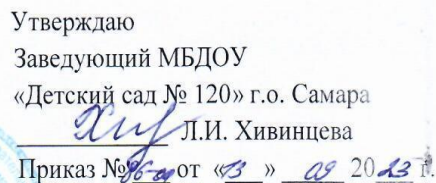 Утверждаю
Заведующий МБДОУ
«Детский сад № 120» г.о. Самара
Л.И. Хивинцева
Приказ № 96-од от «13» 09 2023 г.